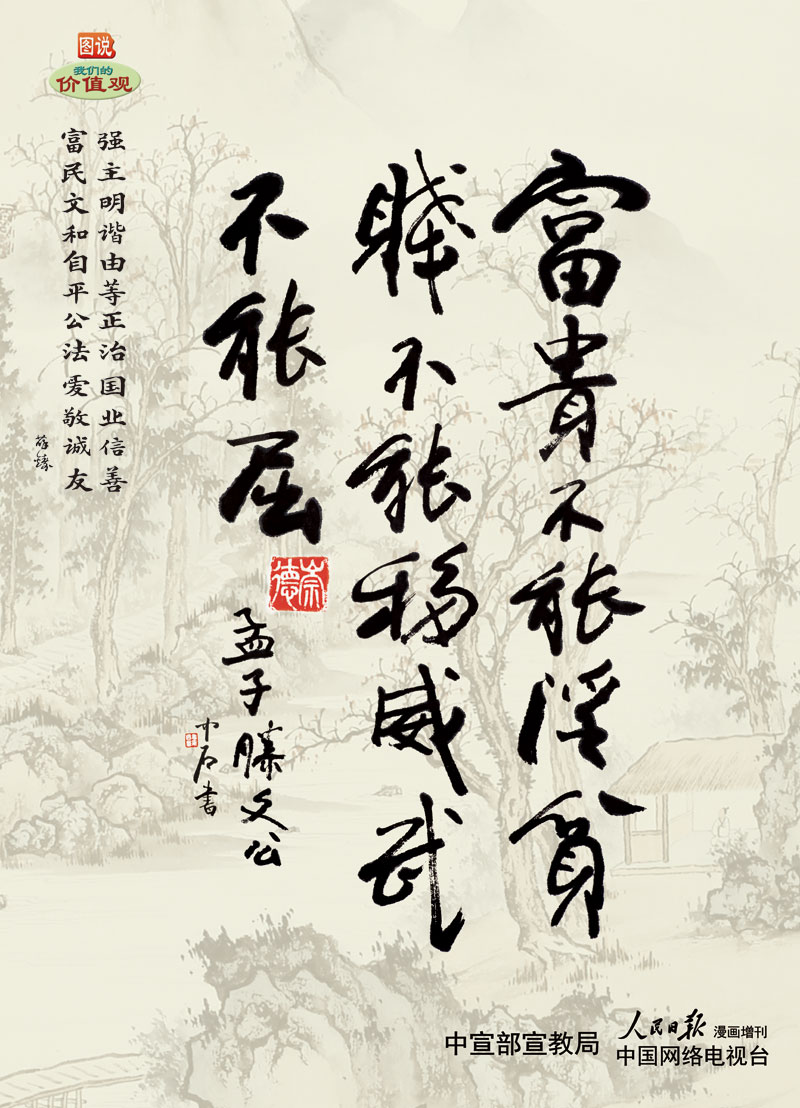 图说
我们的
价值观
富强
民主
文明
和谐
自由
平等
公正
法治
爱国
敬业
诚信
友善
富貴不能淫貧
賤不能移威武
不能屈
崇德
孟子滕文公
中石書
中宣部宣教局
人民日报 漫画增刊
中国网络电视台